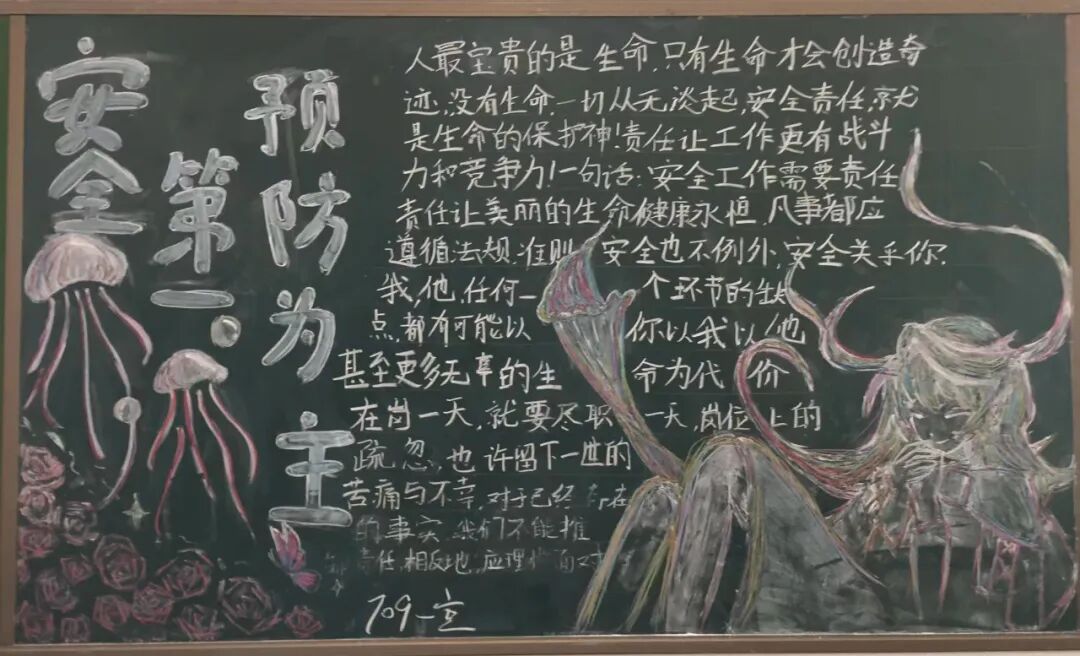 安全
第一。
预防为主
人最宝贵的是生命,只有生命才会创造奇
迹,没有生命,一切从无谈起,安全责任,就
是生命的保护神!责任让工作更有战斗
力和竞争力!一句话:安全工作需要责任
责任让美丽的生命健康永恒,凡事都应
遵循法规.准则,安全也不例外,安全关乎你.
我,他,任何一个环节的
点,都有可能以你以我以他
甚至更多无辜的生命为代价
在岗一天,就要尽职一天,岗位上的
疏忽,也许留下一世的
苦痛与不幸,对于已经存在
的事实,我们不能推
责任,相反地,应理 面对
709一宣